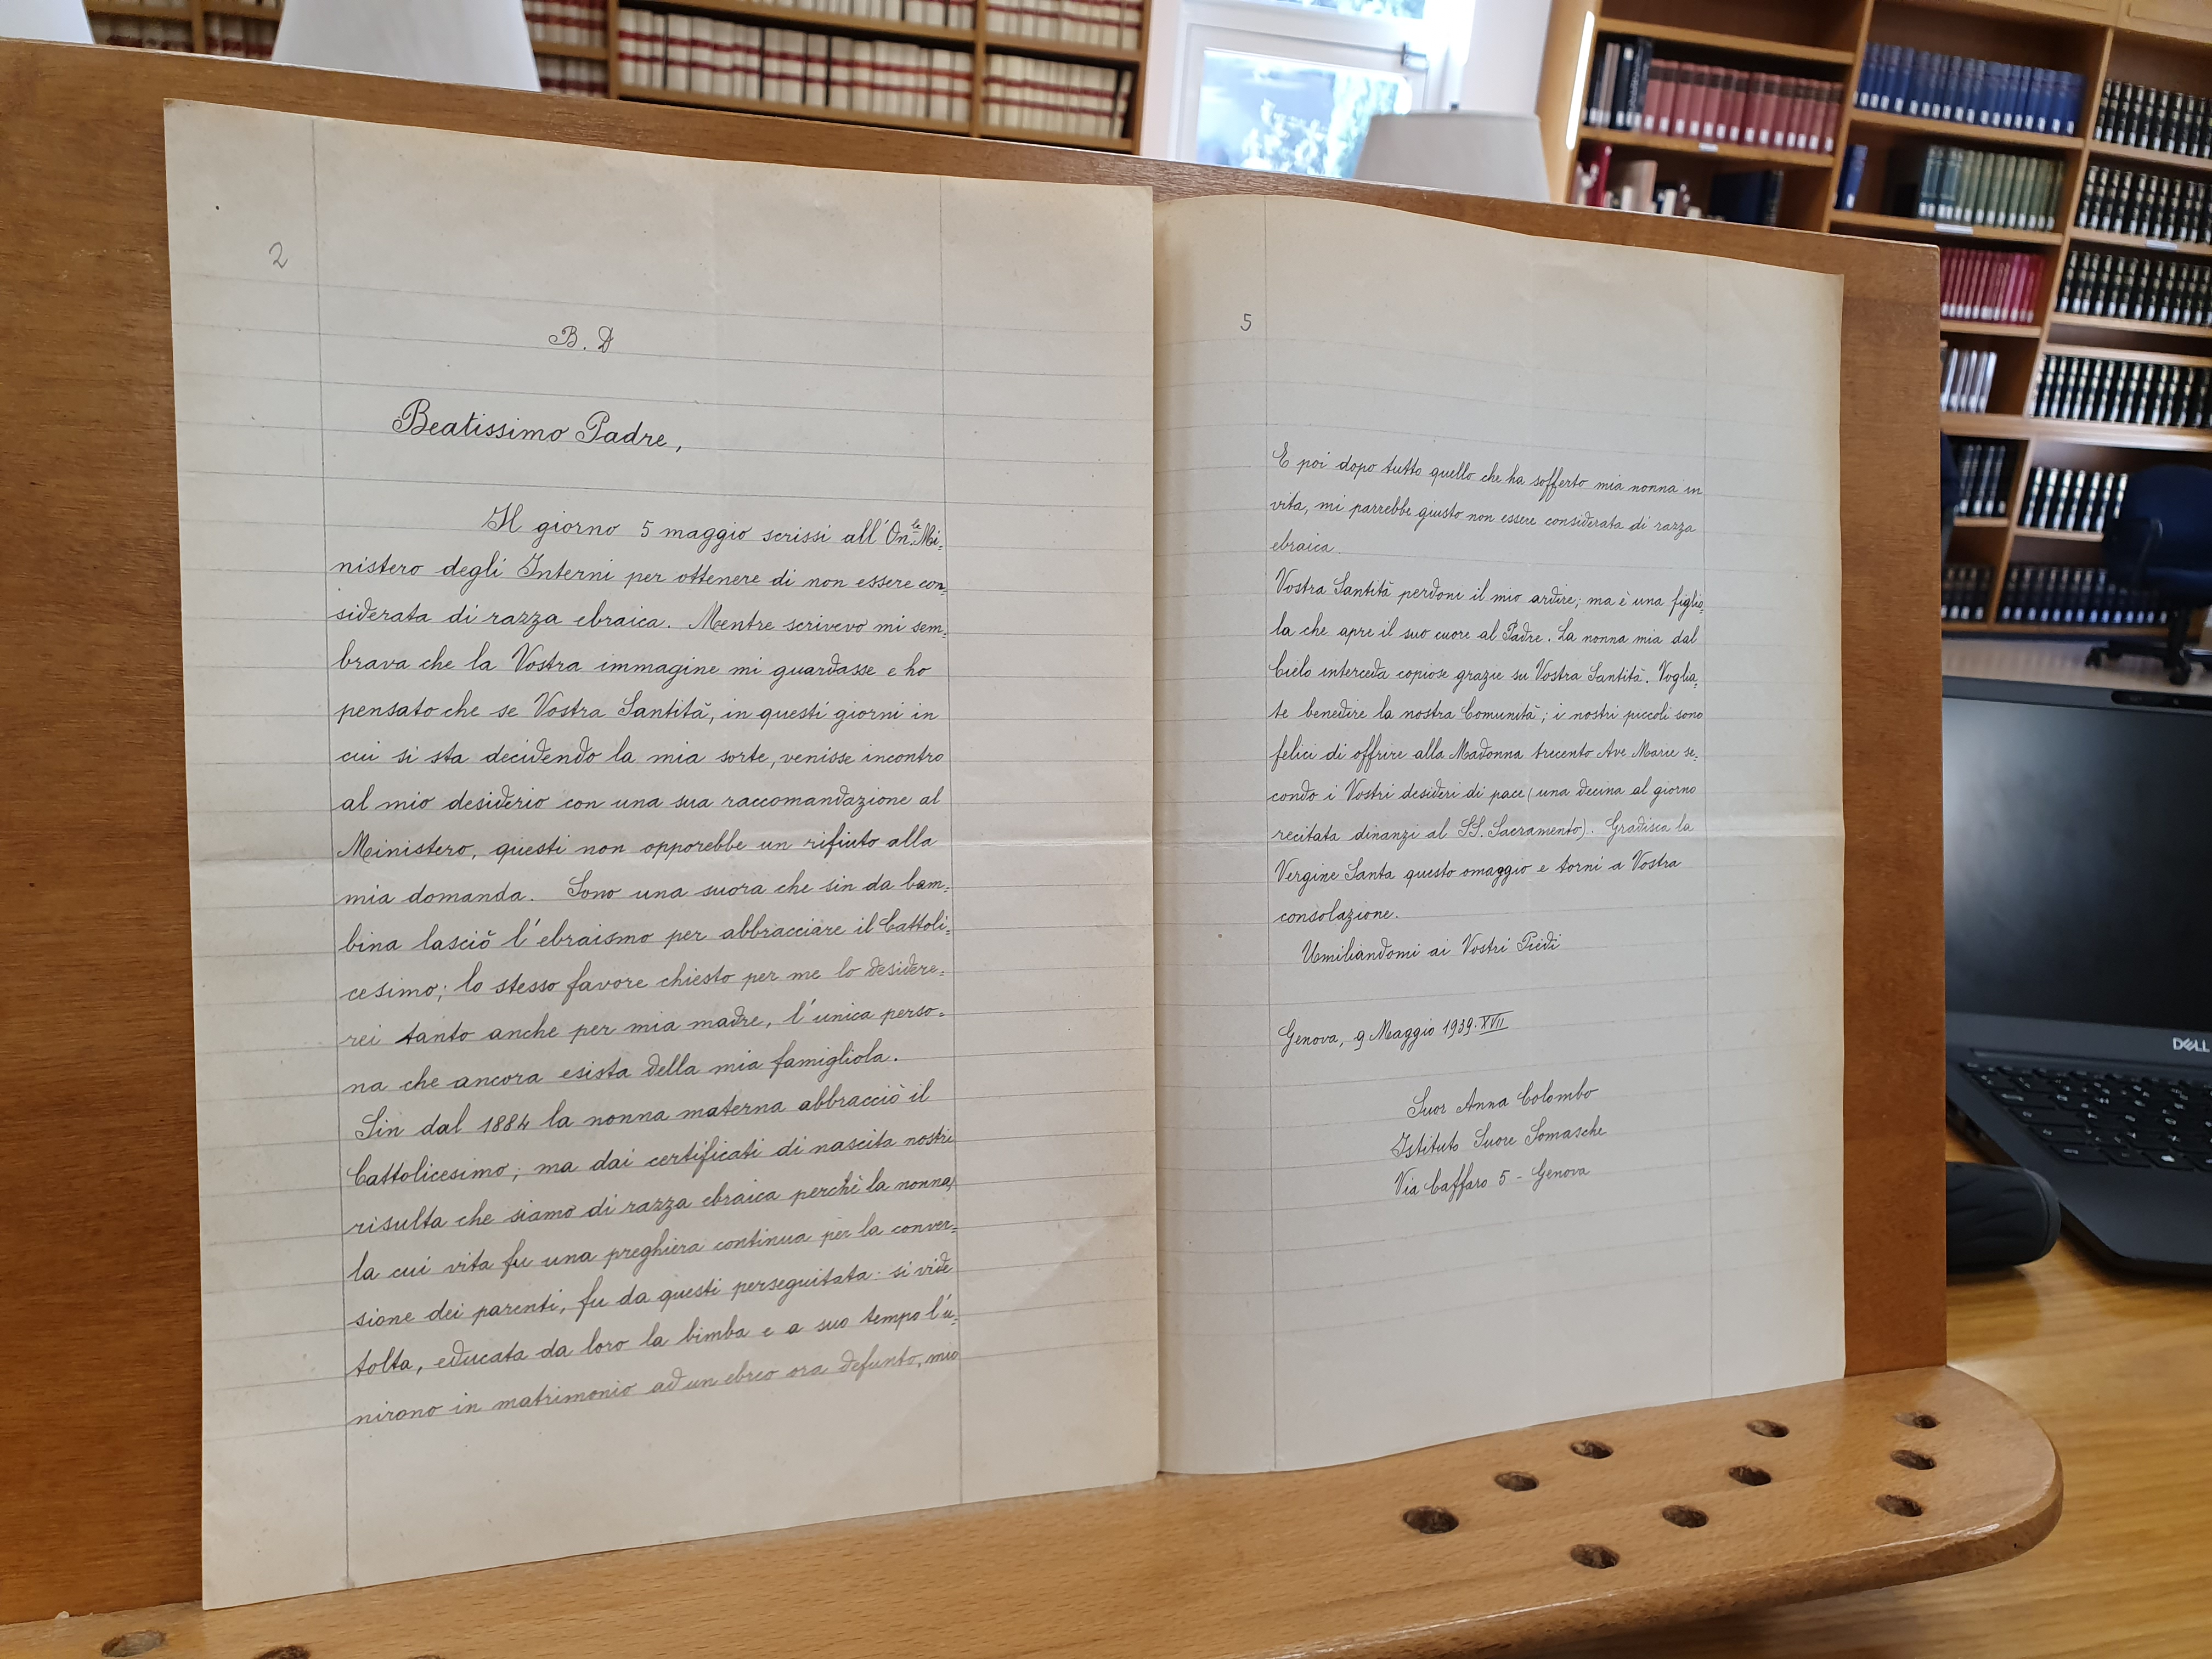 2
B. D
Beatissimo Padre,
Il giorno 5 maggio scrissi all'On.le Mi=
nistero degli Interni per ottenere di non essere con=
siderata di razza ebraica. Mentre scrivevo mi sem=
brava che la Vostra immagine mi guardasse e ho
pensato che se Vostra Santità, in questi giorni in
cui si sta decidendo la mia sorte, venisse incontro
al mio desiderio con una sua raccomandazione al
Ministero, questi non opporebbe un rifiuto alla
mia domanda. Sono una suora che sin da bam=
bina lasciò l'ebraismo per abbracciare il Cattoli=
cesimo; lo stesso favore chiesto per me lo desidere=
rei tanto anche per mia madre, l'unica perso=
na che ancora esista della mia famigliola.
Sin dal 1884 la nonna materna abbracciò il
Cattolicesimo; ma dai certificati di nascita nostri
risulta che siamo di razza ebraica perchè la nonna,
la cui vita fu una preghiera continua per la conver=
sione dei parenti, fu da questi perseguitata: si vide
tolta, educata da loro la bimba e a suo tempo l'u=
nirono in matrimonio ad un ebreo ora defunto, mio
5
E poi dopo tutto quello che ha sofferto mia nonna in
vita, mi parrebbe giusto non essere considerata di razza
ebraica.
Vostra Santità perdoni il mio ardire; ma è una figlio=
la che apre il suo cuore al Padre. La nonna mia dal
Cielo interceda copiose grazie su Vostra Santità. Voglia=
te benedire la nostra Comunità; i nostri piccoli sono
felici di offrire alla Madonna trecento Ave Marie se=
condo i Vostri desideri di pace (una decina al giorno
recitata dinanzi al SS. Sacramento). Gradisca la
Vergine Santa questo omaggio e torni a Vostra
consolazione.
Umiliandomi ai Vostri Piedi
Genova, 9 Maggio 1939. XVII
Suor Anna Colombo
Istituto Suore Somasche
Via Caffaro 5 - Genova
DELL